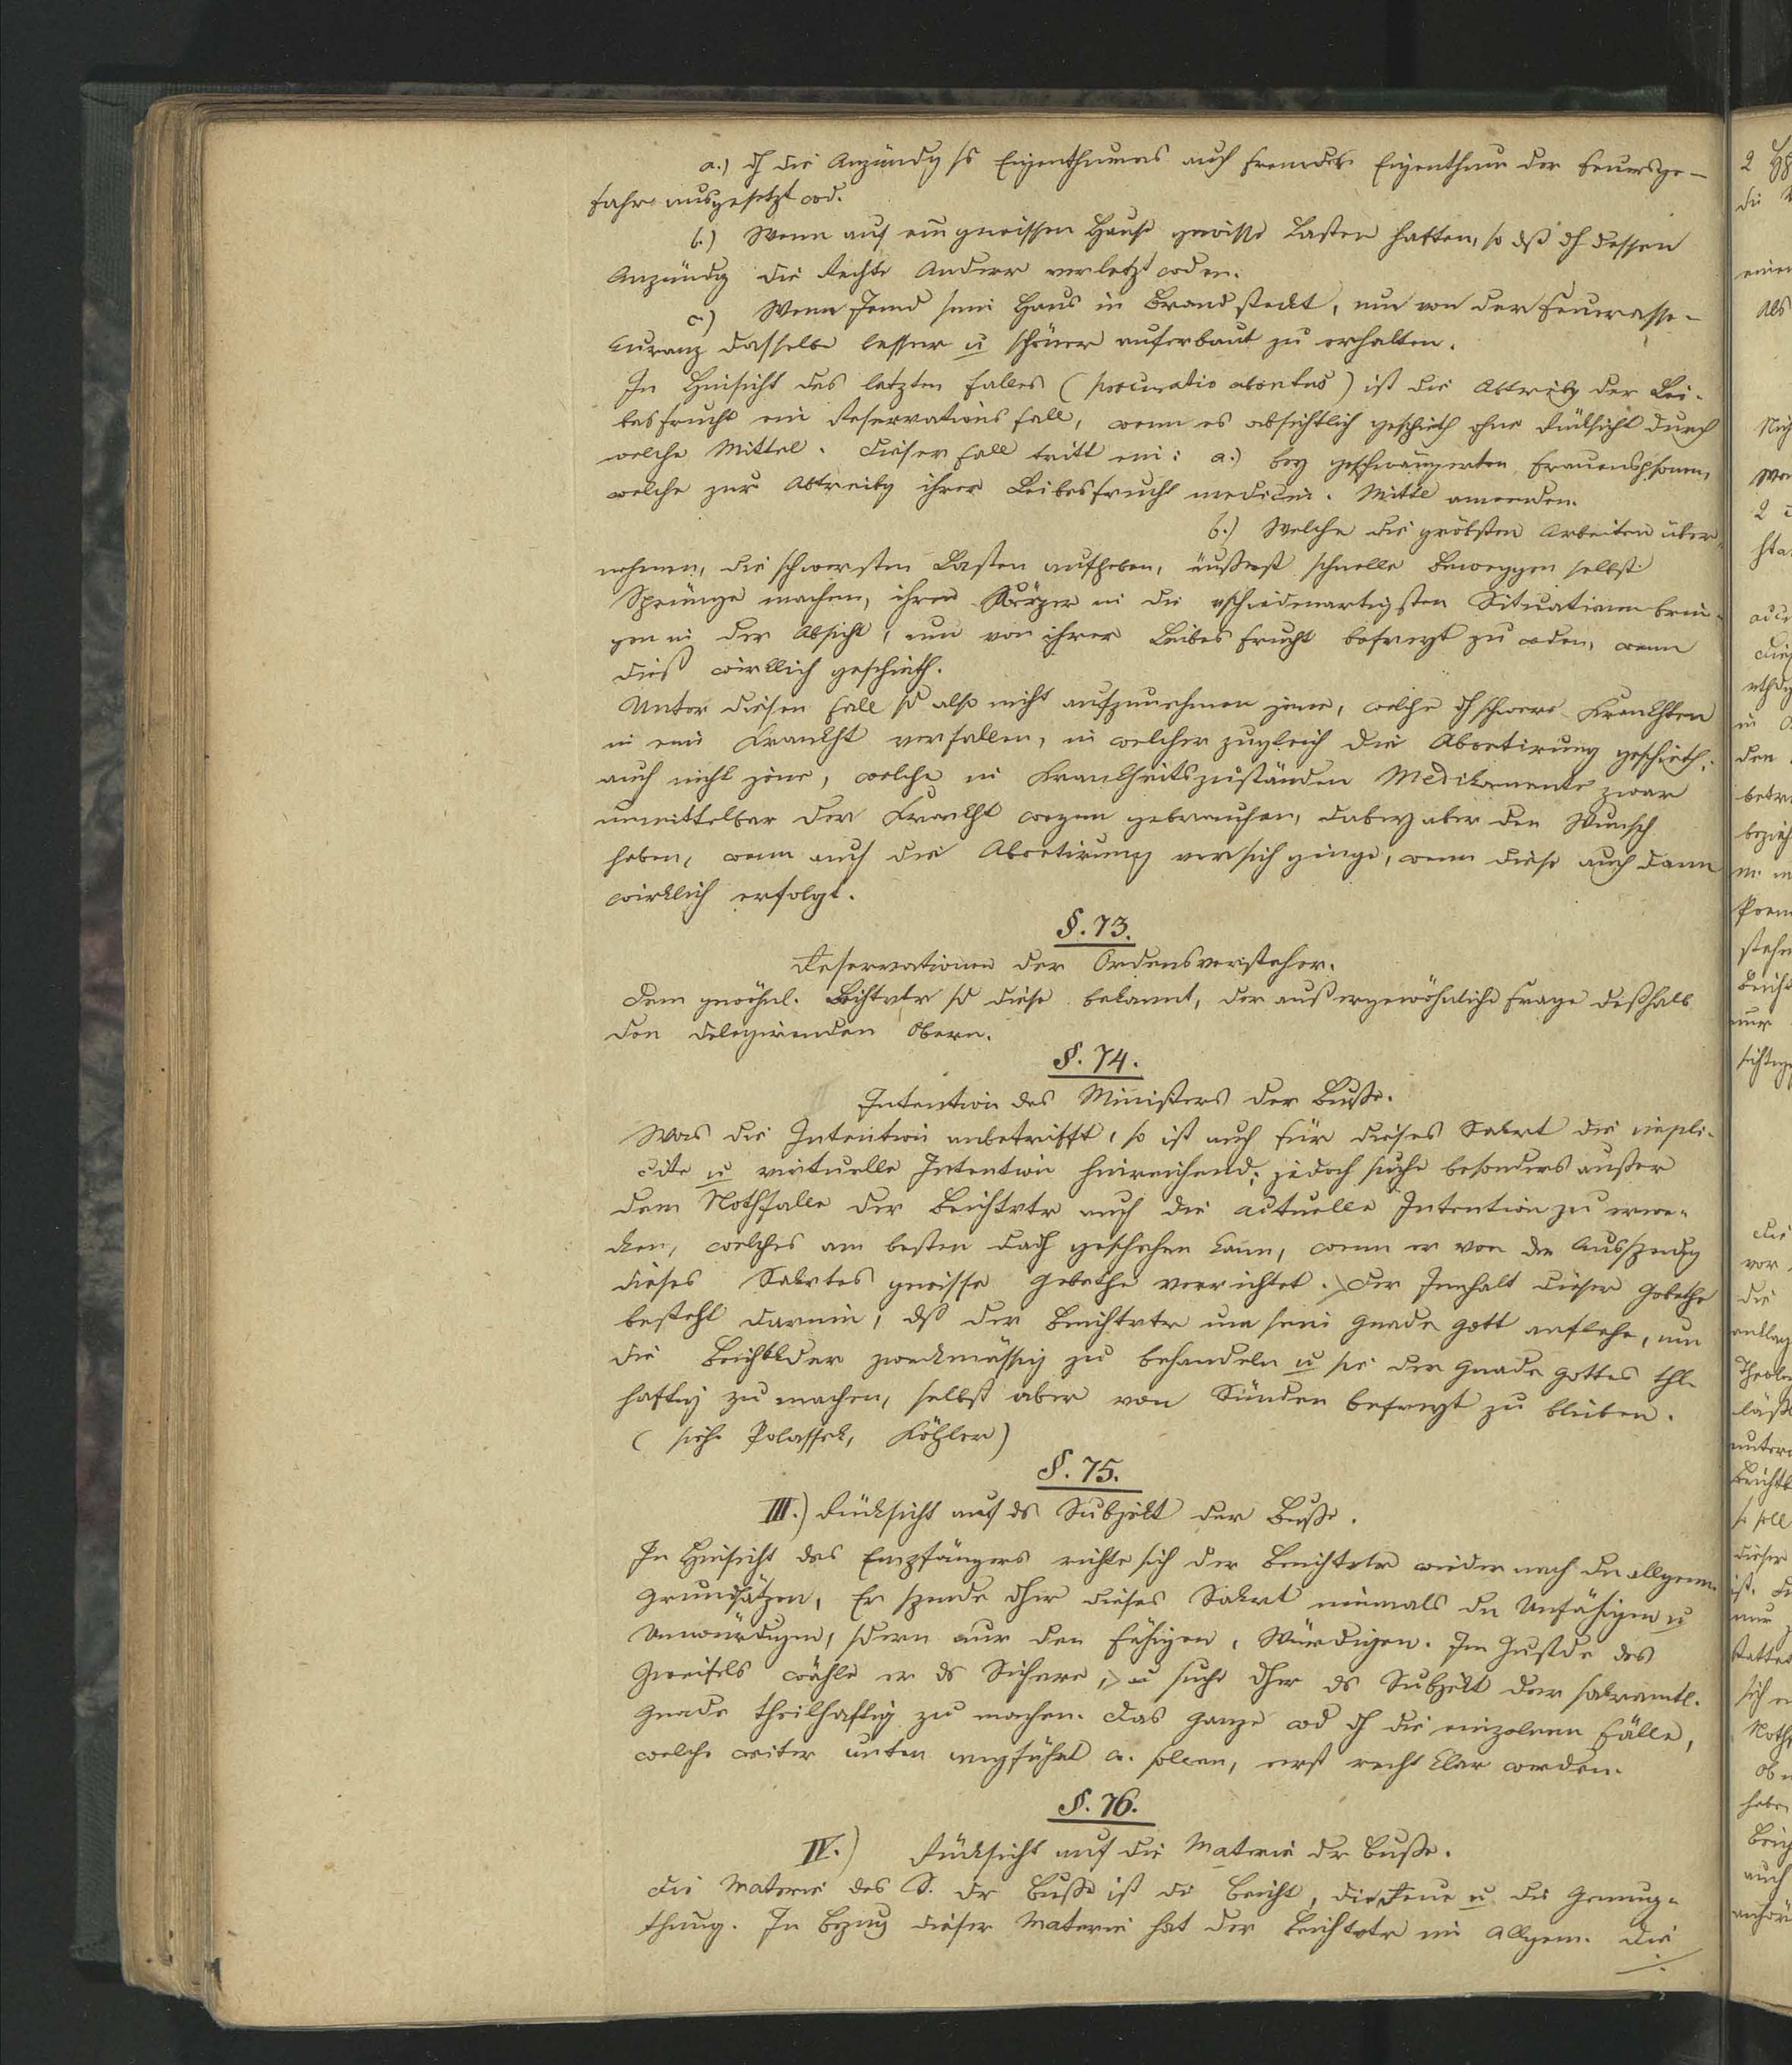 a.) dh die Anzündg ss Eigenthumes auch fremdes Eigenthum der Feuersge-
fahr ausgesetzt wd.
b.) Wenn auf ein gewissen Hause gewisse Lasten haften, so dß dh dessen
Anzündg die Rechte Anderer verletzt wden.
c.) Wenn Jemd sein Haus in Brand steckt, um von der Feuerasse-
kuranz dasselbe besser u schöner auferbaut zu erhalten.
In Hinsicht des letzten Falles (procuratio abortus) ist die Abtreibg der Lei-
besfrucht ein Reservationsfall, wenn es absichtlich geschieth ohne Rücksicht durch
welche Mittel. Dieser Fall tritt ein: a.) bey geschwängerten Frauenspsonen,
welche zur Abtreibg ihrer Leibesfrucht medicin. Mittel anwenden.
b.) Welche die gröbsten Arbeiten über-
nehmen, die schwersten Lasten aufheben, äußerst schnelle Beweggen selbst
Sprünge machen, ihren Körper in die vschiedenartigsten Situationen brin-
gen in der Absicht, um von ihrer Leibesfrucht befreyt zu wden, wenn
dieß wirklich geschieth.
Unter diesen Fall sd also nicht aufzunehmen jene, welche dh schwere Krankhten
in eine Krankht verfallen, in welcher zugleich die Abortirung geschieth;
auch nicht jene, welche in Krankheitszuständen Medikamente zwar
unmittelbar der Krankht wegen gebrauchen, dabey aber den Wunsch
haben, wenn auch die Abortirung vor sich ginge, wenn diese auch dann
wirklich erfolgt.
§. 73.
Reservationen der Ordensvorsteher.
Dem gewöhnl. Beichtvtr sd diese bekannt, der außergewöhnliche frage deßhalb
den delegirenden Obern.
§. 74.
Intention des Ministers der Buße.
Was die Intention anbetrifft, so ist auch für dieses Sakrt die impli-
cite u virtuelle Intention hinreichend; jedoch suche besonders außer
dem Nothfalle der Beichtvtr auch die actuelle Intention zu erwe-
cken, welches am besten dadh geschehen kann, wenn er vor der Ausspendg
dieses Sakrtes gewisse Gebethe verrichtet. Der Innhalt dieser Gebethe
besteht darinn, dß der Beichtvtr um seine Gnade Gott anflehe, um
die Beichtkder zweckmässig zu behandeln u sie der Gnade Gottes thl-
haftig zu machen, selbst aber von Sünden befreyt zu bleiben.
(siehe Polaschek, Köhler)
§. 75.
III.) Rücksicht auf ds Subjekt der Buße.
In Hinsicht des Empfängers richte sich der Beichtvtr wieder nach den allgem.
Grundsätzen, Er spende dher dieses Sakrt niemals den Unfähigen u
Unwürdigen, sdern nur den Fähigen, Würdigen. Im Zustde des
Zweifels wähle er ds Sichere, u suche dher ds Subjekt der sakramtl.
Gnade theilhaftig zu machen. Das Ganze wd dh die einzelnen Fälle,
welche weiter unten angführt w. sollen, erst recht klar werden.
§. 76.
IV.) Rücksicht auf die Materie dr Buße.
Die Materie des S. dr Buße ist die Beicht, die Reue u die Genug-
thung. In Bezug dieser Materie hat der Beichtvtr im Allgem. die